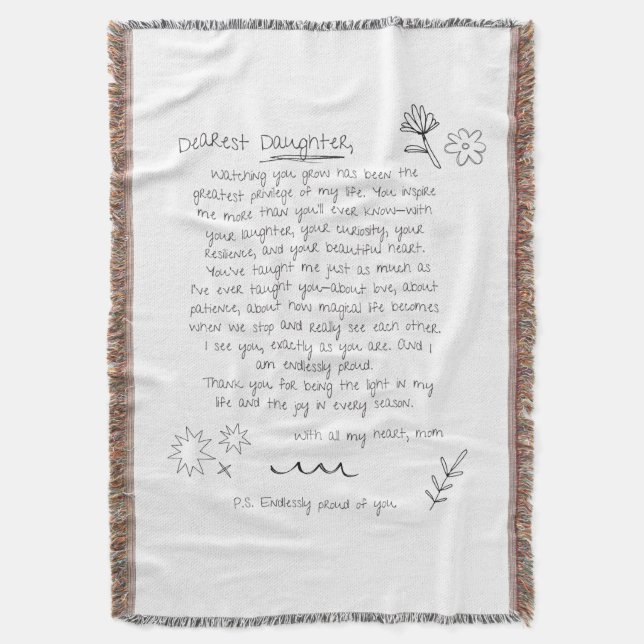 Dearest Daughter,
Watching you grow has been the
greatest privilege of my life. You inspire
me more than you'll ever know—with
your laughter, your curiosity, your
resilience, and your beautiful heart.
You've taught me just as much as
I've ever taught you—about love, about
patience, about how magical life becomes
when we stop and really see each other.
I see you, exactly as you are. And I
am endlessly proud.
Thank you for being the light in my
life and the joy in every season.
with all my heart, mom
P.S. Endlessly proud of you